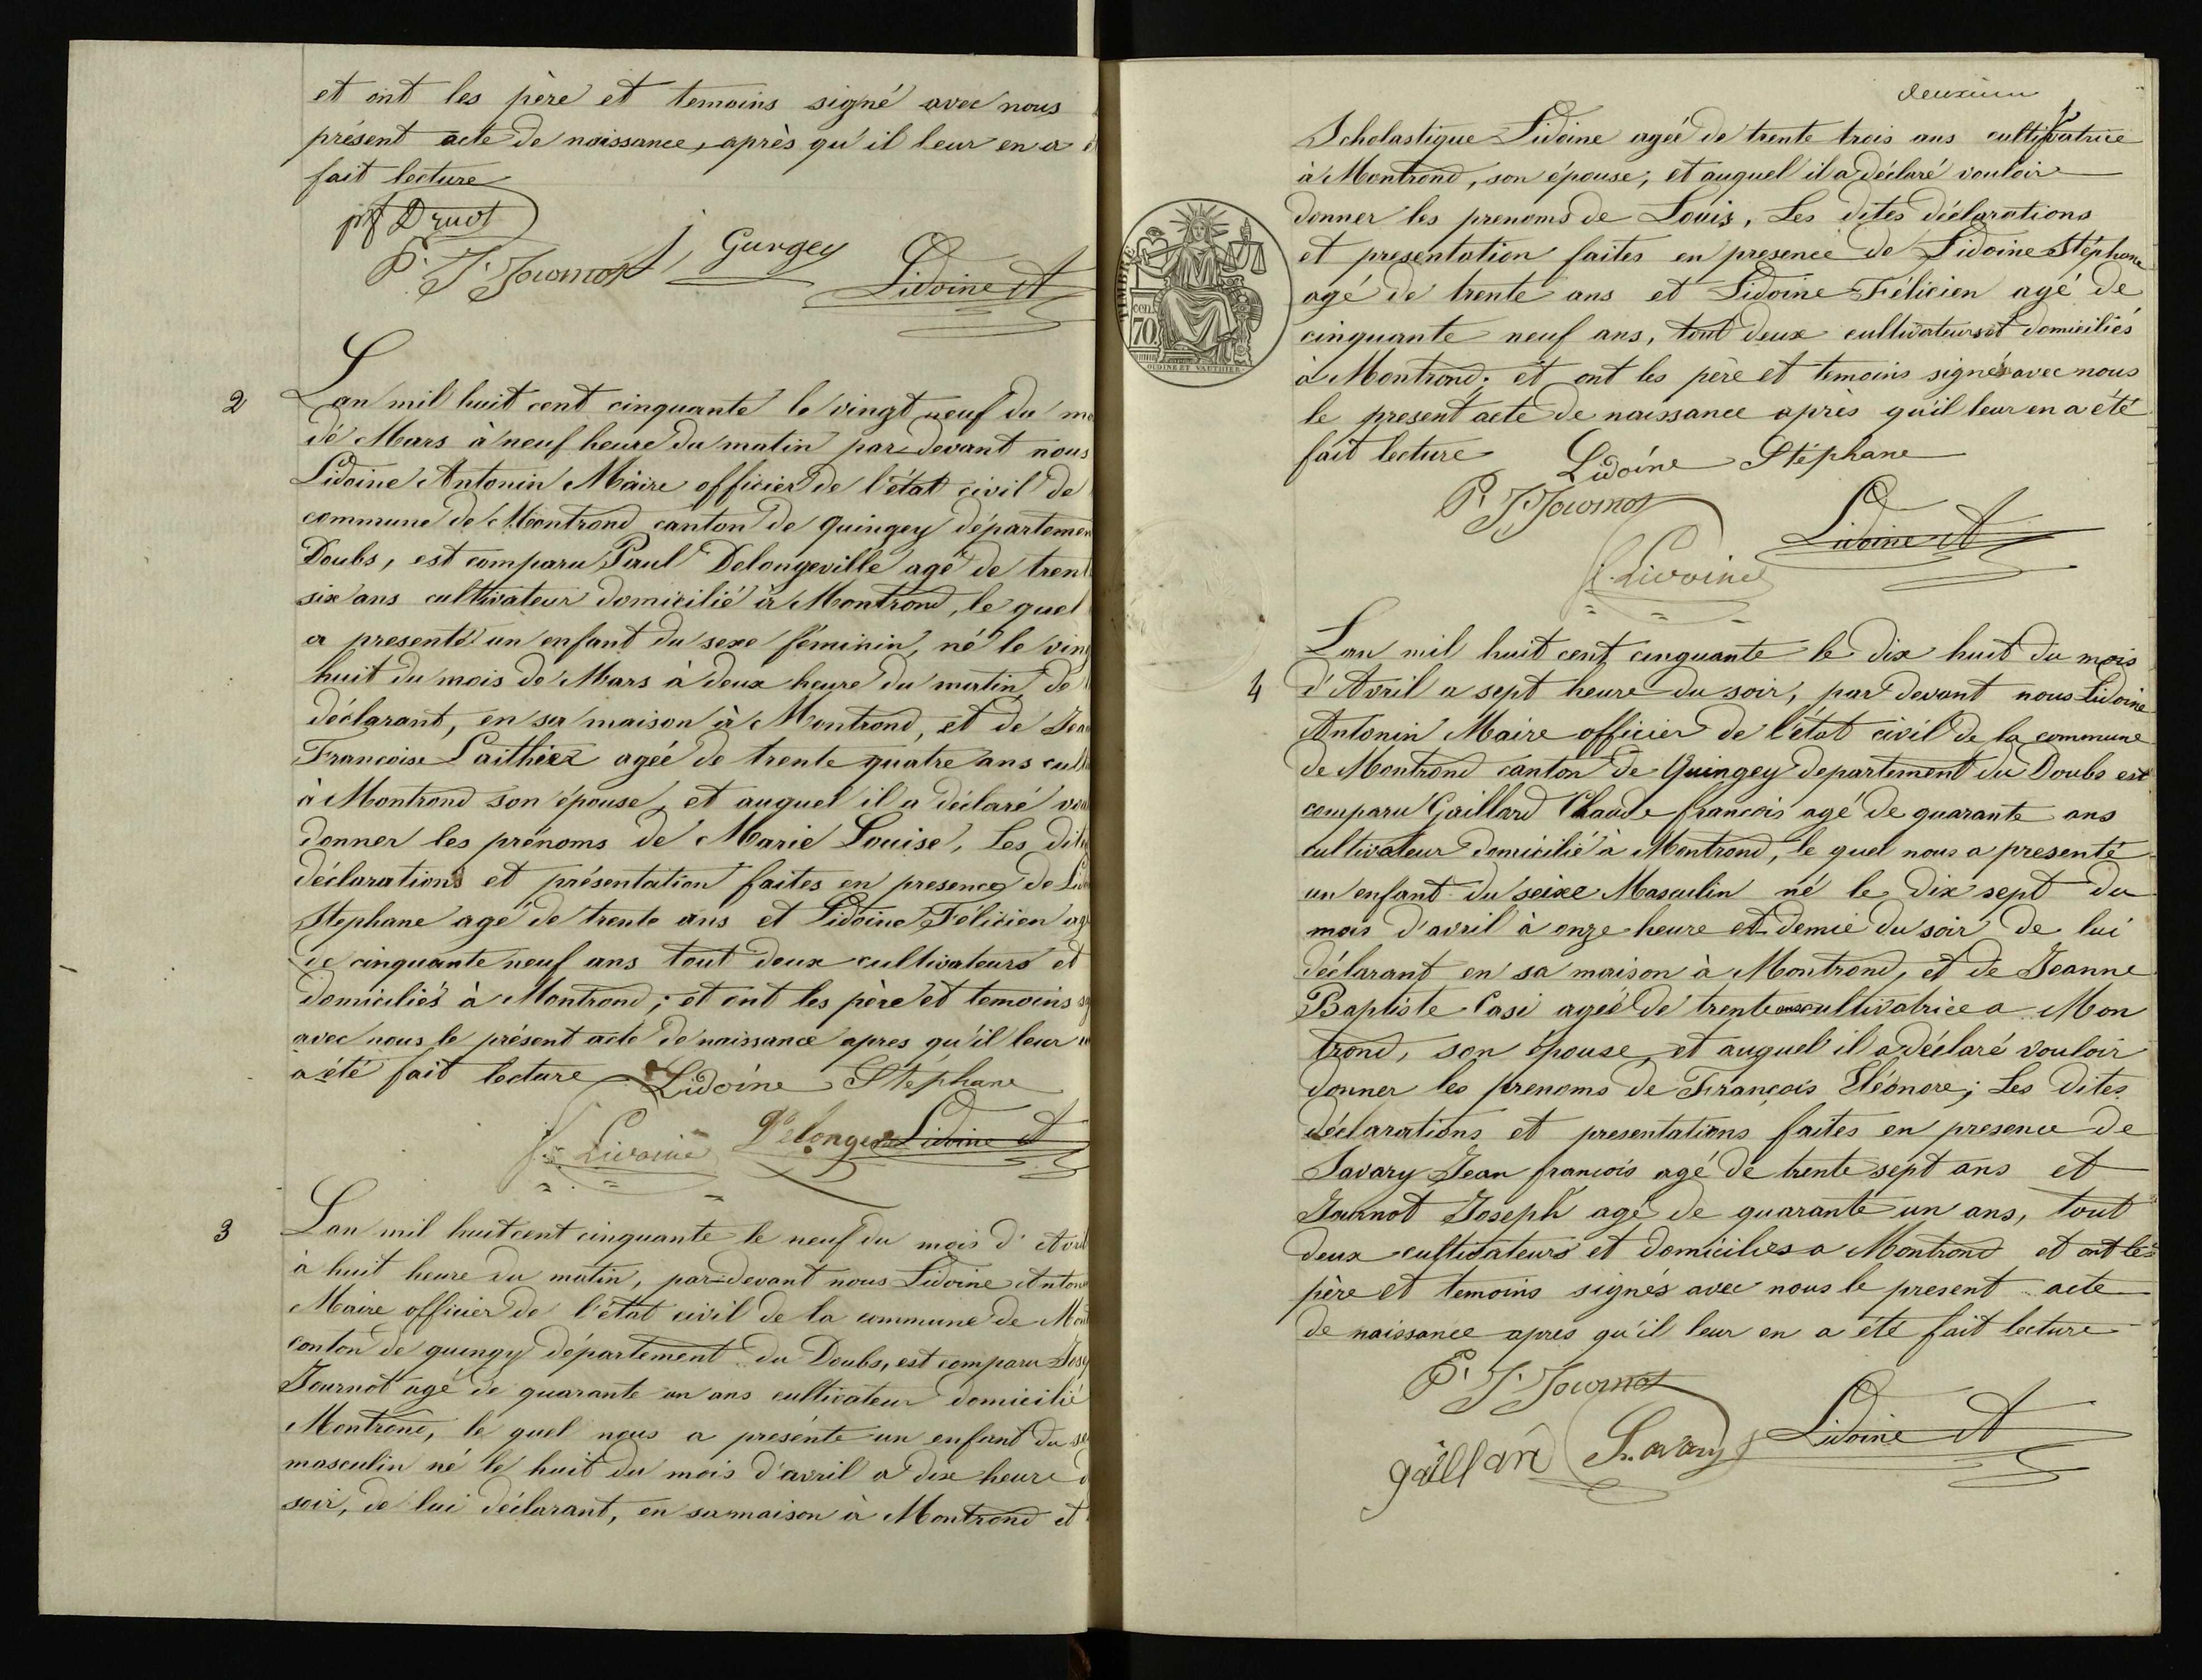 et ont les père et temoins signé avec nous
présent acte de naissance, après qu'il leur en a
fait lecture
Druot
P. J. Journot
J, Gurgey
Lidoine A
2
Lan mil huit cent cinquante le vingt neuf du mo
de Mars à neuf heure du matin par devant nous
Lidoine Antonin Maire officier de l'état civil de
commune de Montrond canton de Quingey départemen
Doubs, est comparu Paul Delongeville agé de trent
six ans cultivateur domicilié à Montrond, le quel
a presenté un enfant du sexe féminin, né le ving
huit du mois de Mars à deux heure du matin de
déclarant, en sa maison à Montrond, et de Jean
Francoise Laithiez agée de trente quatre ans cult
à Montrond son épouse, et auquel il a déclaré vou
donner les prénoms de Marie Louise, Les dite
déclarations et présentation faites en presence de Lido
Stephane agé de trente ans et Lidoine Félicien ag
de cinquante neuf ans tout deux cultivateurs et
domiciliés à Montrond; et ont les père et temoins sig
avec nous le présent acte de naissance apres qu'il leur
a été fait lecture Lidoine Stéphane
f. Lidoine Delonge Lidoine A
3
Lan mil huit cent cinquante le neuf du mois d'Avril
à huit heure du matin, par-devant nous Lidoine Anton
Maire officier de l'état civil de la commune de Mont
conton de quingy département du Doubs, est comparu Jose
Journot agé de quarante un ans cultivateur domicilié
Montrond, le quel nous a présenté un enfant du se
masculin né le huit du mois d'avril a dix heure d
soir, de lui déclarant, en sa maison à Montrond et
deuxieme
Scholastique Lidoine agée de trente trois ans cultivatrice
à Montrond, son épouse; et auquel il a déclaré vouloir
donner les prenoms de Louis, Les dites déclarations
et presentation faites en presence de Lidoine Stéphane
agé de trente ans et Lidoine Félicien agé de
cinquante neuf ans, tout deux cultivateurs et domiciliés
à Montrond; et ont les père et temoins signés avec nous
le present acte de naissance après qu'il leur en a été
fait lecture Lidoine Stéphane
P. J. Journot
Lidoine A
f. Lidoine
TIMBRE
cen
70
OUDINE ET VAUTHIER
4
Lan mil huit cent cinquante le dix huit du mois
d'Avril a sept heure du soir, par devant nous Lidoine
Antonin Maire officier de l'état civil de la commune
de Montrond canton de Quingey departement du Doubs est
comparu Gaillard Claude francois agé de quarante ans
cultivateur domicilié à Montrond, le quel nous a presenté
un enfant du seixe Masculin né le dix sept du
mois d'avril à onze heure et demie du soir de lui
déclarant en sa maison à Montrond, et de Jeanne
Baptiste Casi agée de trente ans cultivatrice a Mon
trond, son épouse, et auquel il a déclaré vouloir
donner les prenoms de François Eléonore; Les dites
déclarations et presentations faites en presence de
Savary Jean francois agé de trente sept ans et
Journot Joseph agé de quarante un ans, tout
deux cultivateurs et domicilies a Montrond et ont les
père et temoins signés avec nous le present acte
de naissance apres qu'il leur en a été fait lecture
P. J. Journot
gaillard Savary Lidoine A